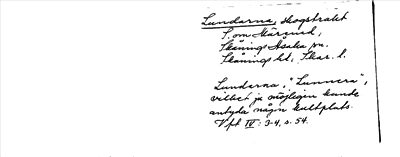 Lundarna, skogstrakt
S. om Mårsmad,
Skånings Åsaka sn.
Skånings hd, Skar. l.
Lundarna, "Lunnera",
vilket ju möjligen kunde
antyda någon kultplats.
Vfl IV: 3-4, s. 54.